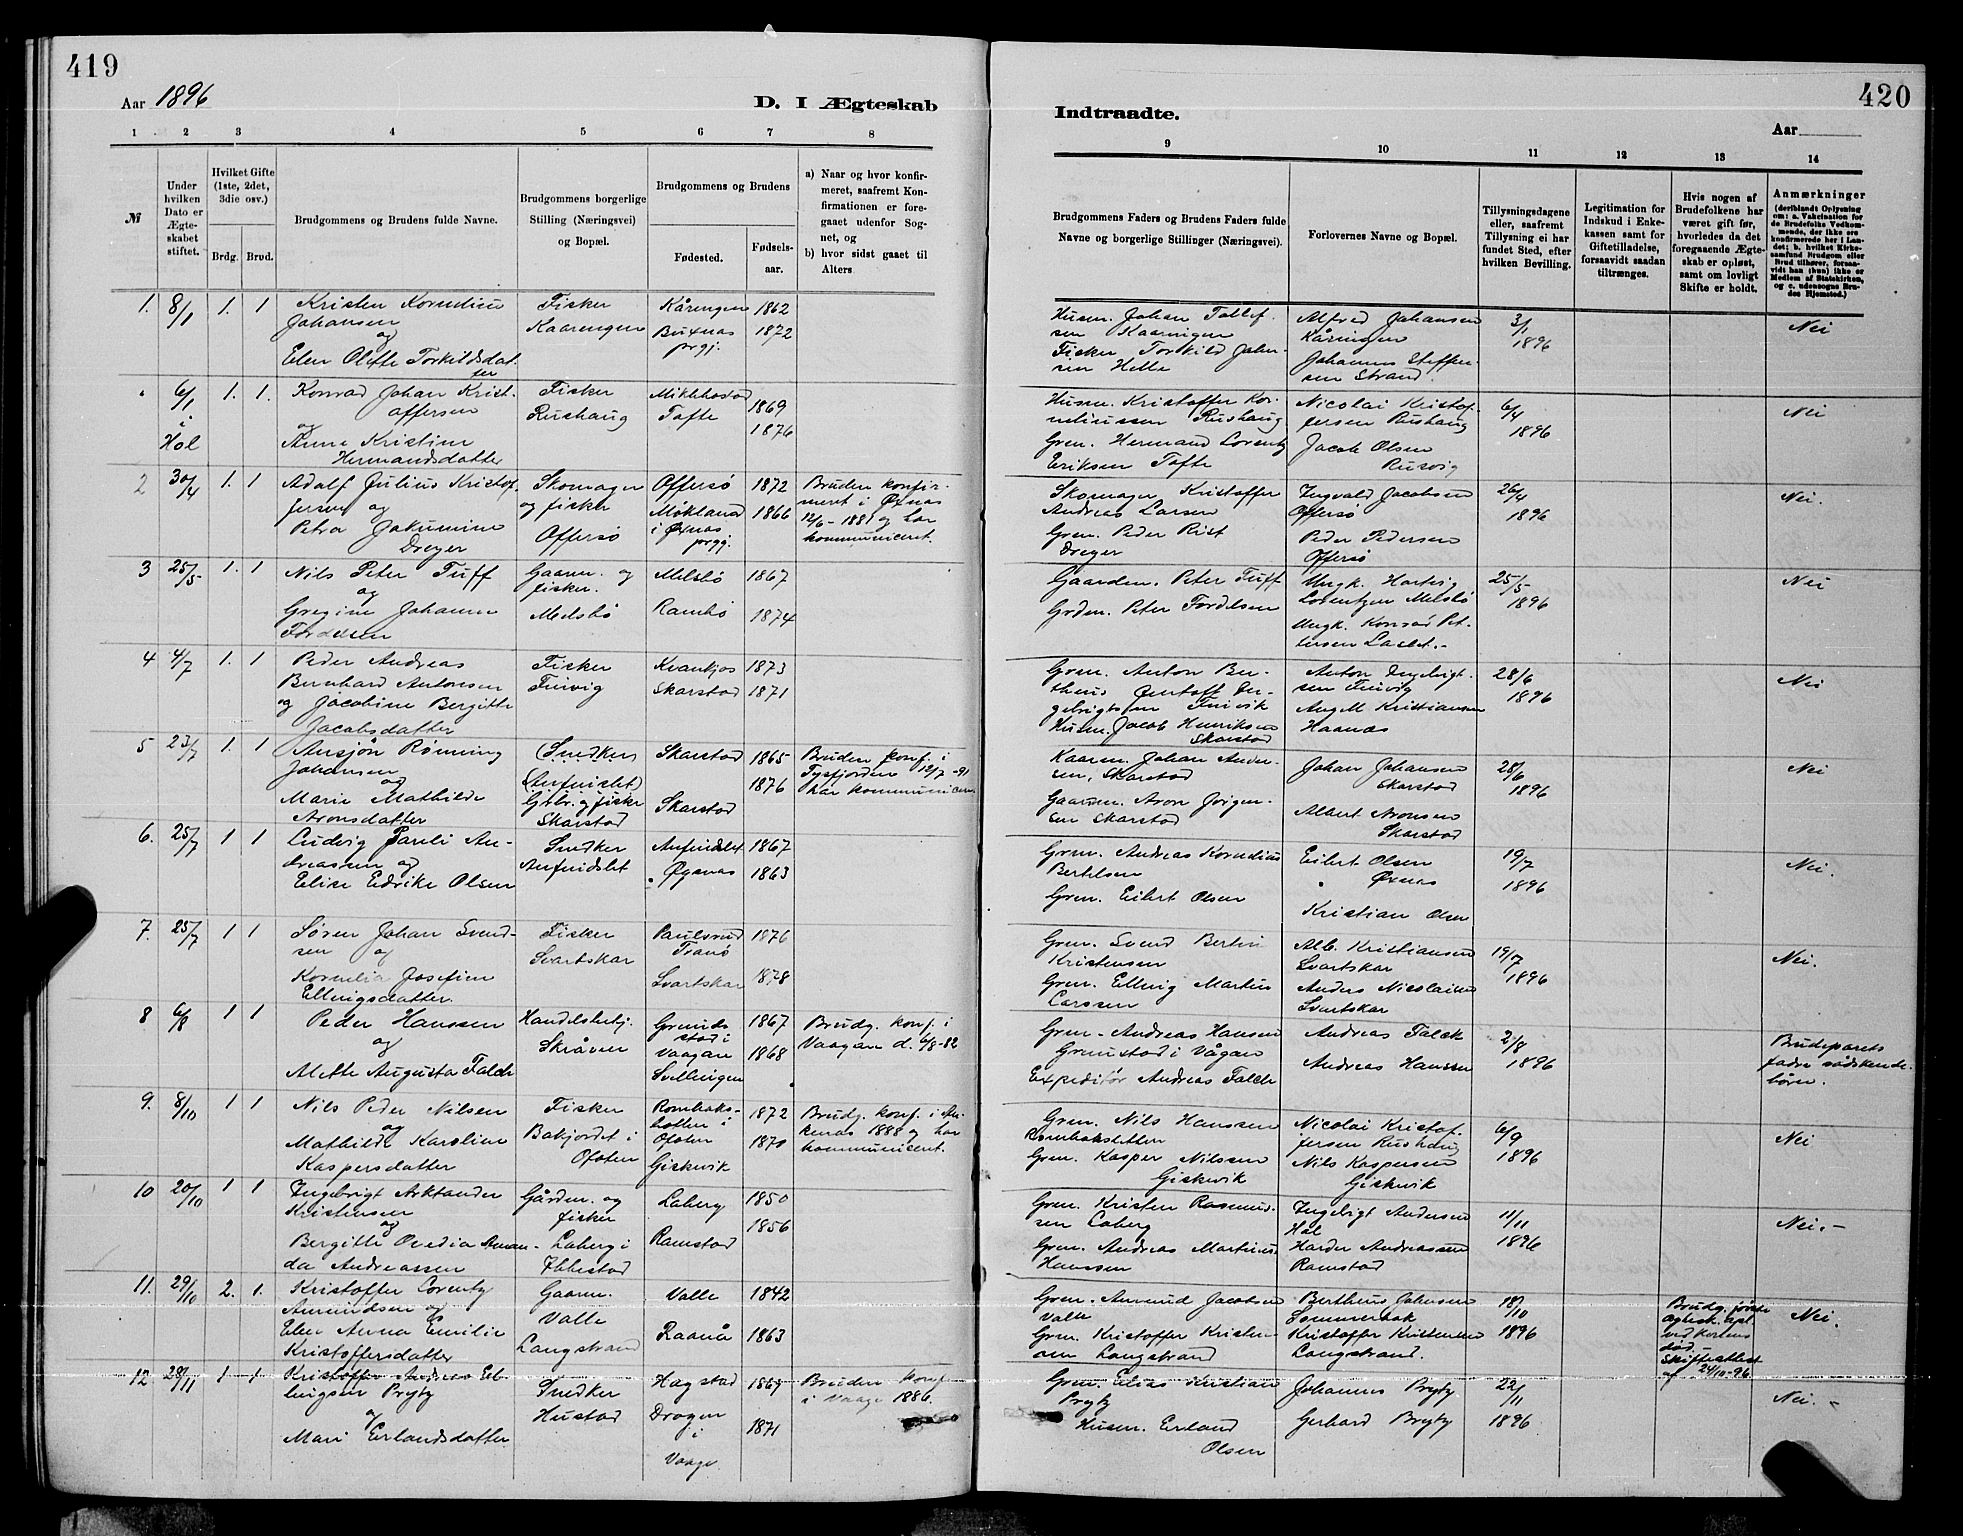 419
Aar 1896
D. I Ægteskab
1 2 3 4 5 6 7 8
№
Under hvilken Dato er Ægteskabet stiftet.
Hvilket Gifte (1ste, 2det, 3die osv.)
Brdg. Brud.
Brudgommens og Brudens fulde Navne.
Brudgommens borgerlige Stilling (Næringsvei) og Bopæl.
Brudgommens og Brudens
Fødested.
Fødselsaar.
a) Naar og hvor konfirmeret, saafremt Konfirmationen er foregaaet udenfor Sognet, og
b) hvor sidst gaaet til Alters
1. 8/1 1. 1 Kristen Kornelius Johansen
og
Elen Olette Torkildsdatter
Fisker
Kaaringen
Kåringen 1862
Buxnæs prgj. 1872
6/1 i Hol 1. 1. Konrad Johan Kristoffersen
og
Anne Kristine Hermandsdatter
Fisker
Rushaug
1869
Tofte 1876
2 30/4 1. 1 Adolf Julius Kristoffersen og
Petra Jakumine Dreyer
Skomager og fisker
Offersø
Offersø 1872
Mikland i Øxnæs prgj. 1866
Bruden konfirmeret i Øxnæs
12/6-1881 og har kommuniceret.
3 25/5 1. 1 Nils Peter Tuff
og
Gregine Johanna Fordelsen
Gaarm. og fisker.
Melsbø
Melsbø 1867
Ramsø 1874
4 4/7 1. 1 Peder Andreas Bernhard Antonsen
og Jacobine Bergitte Jacobsdatter
Fisker
Finvig
Kvankjos 1873
Skarstad 1871
5 23/7 1. 1 Ansjøn Rønning Johansen
og
Marie Mathilde Aronsdatter
(Snedker
Anfindslet)
Gbr. og fisker
Skarstad
Skarstad 1865
Skarstad 1876
Bruden konf. i Tysfjorden 12/7-91
har kommuniceret
6. 25/7 1 1 Ludvig Pauli Andreassen og
Elise Edrike Olsen
Snedker
Anfindslet
Anfindslet 1867
Øxnæs 1863
7. 25/7 1 1 Søren Johan Svendsen og
Kornelia Josefine Ellingsdatter.
Fisker
Svartskar
Paulsrud Tranø 1876
Svartskar 1878
8 6/8 1 1 Peder Hanssen
og
Alette Augusta Falch
Handelsbetj.
Skråven
Grundstad i Vaagan 1867
Svellingen 1868
Brudg. konf. i Vaagan d. 6/8-82
9. 8/10 1 1 Nils Peder Nilsen
og
Mathilde Karoline Kaspersdatter
Fisker
Bakjordet i Ofoten
Rombaksbotten i Ofoten 1872
Giskevik 1870
Brudg. konf. i Ankenæs 1888 og har kommuniceret.
10 20/10 1 1 Ingebrigt Arktander Kristensen
og
Bergitte Ovedia Amanda Andreassen
Gården. og fisker
Laberg i Ibbestad
Laberg 1850
Ramstad 1856
11. 29/10 2. 1. Kristoffer Lorentz Amundsen og
Elen Anna Emilie Kristoffersdatter
Gaarm.
Valle
Langstrand
Valle 1842
Raanå 1863
12 28/11 1 1. Kristoffer Andreas Ellingsen Brydy
og
Mari Erlandsdatter
Snedker
Hustad
Hagstad 1869
Dragen i Vaage. 1871
Bruden konf. i Vaage 1886.
420
Indtraadte.
Aar
9 10 11 12 13 14
Brudgommens Faders og Brudens Faders fulde Navne og borgerlige Stillinger (Næringsvei).
Forlovernes Navne og Bopæl.
Tillysningsdagene eller, saafremt Tillysning ei har fundet Sted, efter hvilken Bevilling.
Legitimation for Indskud i Enkekassen samt for Giftetilladelse, forsaavidt saadan tiltrænges.
Hvis nogen af Brudefolkene har været gift før, hvorledes da det foregaaende Ægteskab er opløst, samt om lovligt Skifte er holdt.
Anmærkninger
(deriblandt Oplysning om: a. Vakcination for de Brudefolks Vedkommende, der ikke ere konfirmerede her i Landet; b. hvilket Kirkesamfund Brudgom eller Brud tilhører, forsaavidt han (hun) ikke er Medlem af Statskirken, og c. udensogns Brudes Hjemsted.)
Husm. Johan Tollefsen Kaaringen
Fisker Torkild Johnsen Helle
Alfred Johansen Kåringen
Johannes Steffensen Strand.
3/1 1896
Nei
Husm. Kristoffer Korneliussen Rushaug
Grm. Hermand Lorentz Eriksen Tofte
Nicolai Kristoffersen Rushaug
Jacob Olsen Rusvig
6/4 1896
Nei
Skomager Kristoffer Andreas Larsen
Grm. Peder Rist Dreyer
Ingvald Jacobsen Offersø
Peder Pedersen Offersø
26/4 1896
Nei.
Gaarden. Peter Tuff
Grdm. Peter Fordelsen
Ungk. Hartvig Lorentzen Melsbø
Ungk. Konrad Pettersen Laslet.
25/5 1896
Nei
Grm. Anton Bertheus Gustaf Ingebrigtsen Finvik
Husm. Jacob Henriksen Skarstad
Anton Ingebrigtsen Finvig
Aug M Kristiansen Haanæs
28/6 1896
Nei
Kaarm. Johan Andersen, Skarstad
Gaarm. Aron Jørgensen Skarstad
Johan Johansen Skarstad
Albert Aronsen Skarstad
28/6 1896
Nei
Grm. Andreas Kornelius Bertelsen
Grm. Eilert Olsen
Eilert Olsen Øxnæs
Kristian Olsen
19/7 1896
Nei.
Grm. Svend Bertin Kristensen
Grm. Elling Martin Larssen
Alb. Kristiansen Svartskar
Anders Nicolaisen Svartskar
19/7 1896
Nei.
Grm. Andreas Hansen Grundstad i Vågan
Expeditør Andreas Falch
Andreas Falck
Andreas Hanssen
2/8 1896
Brudeparets fædre sødskendebørn.
Grm. Nils Hanssen Rombaksbotten
Grm. Kasper Nilssen Giskevik
Nicolai Kristoffersen Rushaug
Nils Kaspersen Giskevik
6/9 1896
Nei
Grm. Kristen Rasmussen Laberg
Grm. Andreas Martinus Hanssen
Ingebrigt Andersen Hol
Harder Andreassen Ramstad
11/11 1896
Nei.-
Grm. Amund Jacobsen Valle
Grm. Kristoffer Kristensen Langstrand
Bertheus Johnsen Sommerbak
Kristoffer Kristensen Langstrand.
18/10 1896
Brudg. første ægtesk. opl. ved konens død.-
Skifteattest af 24/10-96
Nei.
Grm. Elias Kristian Brydy
Husm. Erland Olsen
Johannes Brydy
Gerhard Brydy
22/11 1896
Nei.-